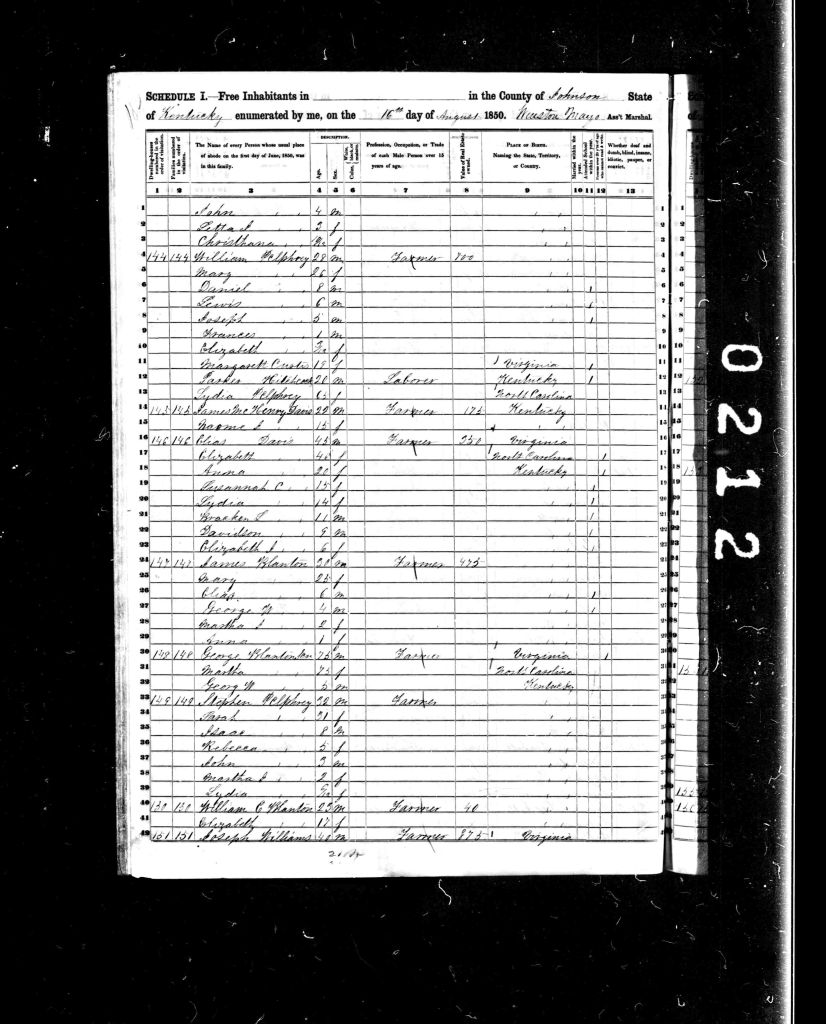 SCHEDULE I.—Free Inhabitants in in the County of Johnson State
of Kentucky enumerated by me, on the 16th day of August 1850. Winston Mayo Ass't Marshal.
Dwelling-houses numbered in the order of visitation.
Families numbered in the order of visitation.
The Name of every Person whose usual place of abode on the first day of June, 1850, was in this family.
DESCRIPTION.
Age.
Sex.
White, black, or mulatto. Color
Profession, Occupation, or Trade of each Male Person over 15 years of age.
Value of Real Estate owned.
PLACE OF BIRTH. Naming the State, Territory, or Country.
Married within the year.
Attended School within the year.
Whether deaf and dumb, blind, insane, idiotic, pauper, or convict.
1 2 3 4 5 6 7 8 9 10 11 12 13
1 John 4 m 1
2 f 2
3 Christhana f 3
4 144 144 William Pelphrey 28 m Farmer 800 4
5 Mary 26 f 5
6 Daniel 8 m 6
7 Lewis 6 m 7
8 Joseph 5 m 8
9 Frances 1 m 9
10 Elizabeth f 10
11 Margarett 19 f Virginia 11
12 Parker 20 m Laborer Kentucky 12
13 Lydia Pelphrey 65 f North Carolina 13
14 145 145 James Mc Henry Davis 22 m Farmer 175 Kentucky 14
15 15 f 15
16 146 146 Elias Davis 45 m Farmer 250 Virginia 16
17 Elizabeth f North Carolina 17
18 Anna 20 f Kentucky 18
19 Susannah C 15 f 19
20 Lydia 14 f 20
21 11 m 21
22 Davidson 9 m 22
23 Elizabeth J 6 f 23
24 147 147 James Blanton 28 m Farmer 475 24
25 Mary 25 f 25
26 Elias 6 m 26
27 George W 4 m 27
28 Martha J 2 f 28
29 Anna 1 f 29
30 148 148 George Blanton Sen 75 m Farmer Virginia 30
31 Martha 75 f North Carolina 31
32 Georg W 5 m Kentucky 32
33 149 149 Stephen Pelphrey 32 m Farmer 33
34 Sarah 21 f 34
35 Isaac 8 m 35
36 Rebecca 5 f 36
37 John 3 m 37
38 Martha J 2 f 38
39 Lydia f 39
40 150 150 William C Blanton 23 m Farmer 40 40
41 Elizabeth 17 f 41
42 151 151 Joseph Williams 40 m Farmer 875 Virginia 42
0212